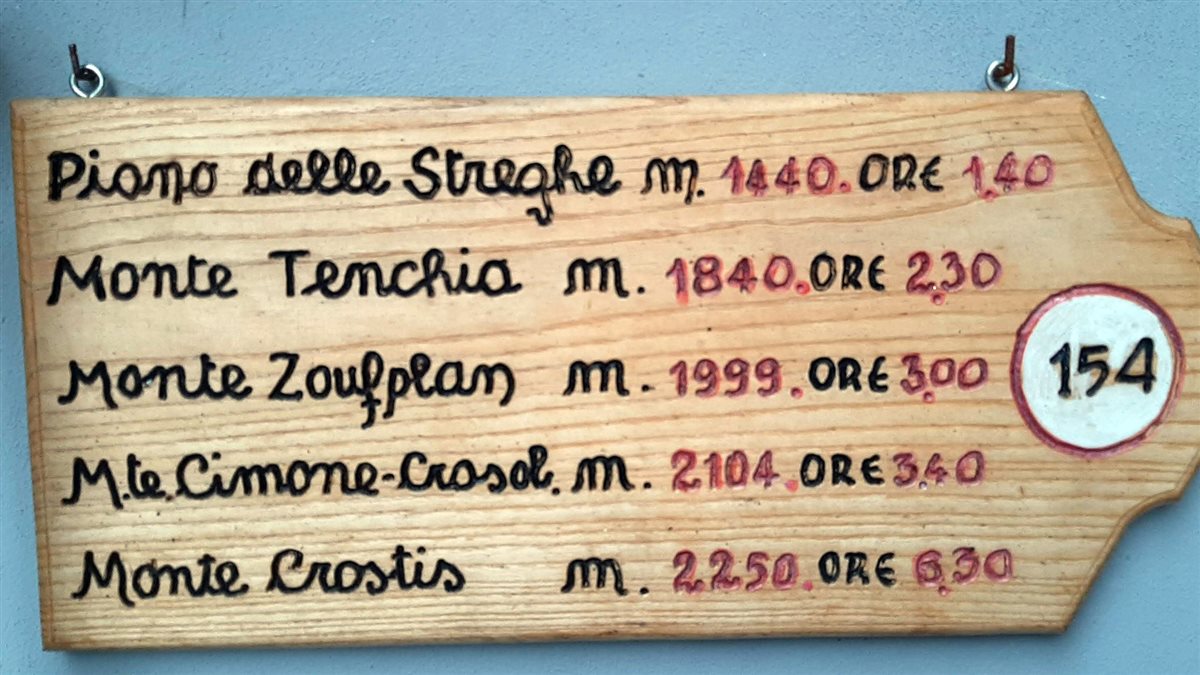 Piano delle Streghe m. 1440. ORE 1.40
Monte Tenchia m. 1840. ORE 2.30
Monte Zoufplan m. 1999. ORE 3.00
154
M.te. Cimone-Crasol. m. 2104. ORE 3.40
Monte Crostis m. 2250. ORE 6.30